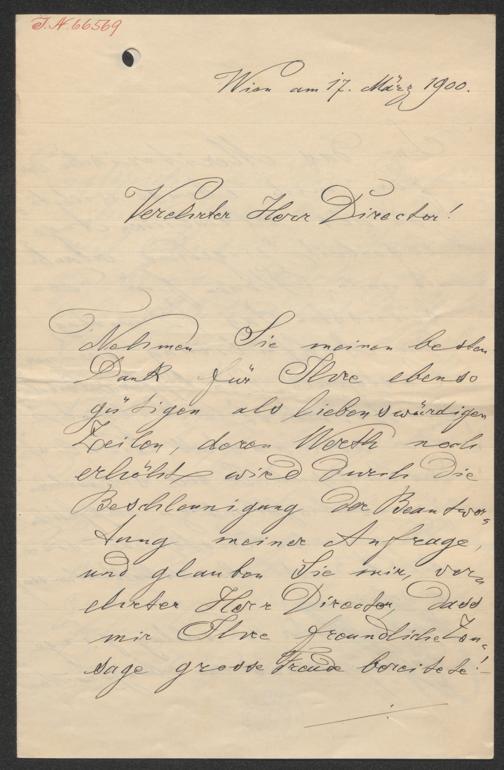 J.N. 66569
Wien am 17. März 1900.
Verehrter Herr Director!
Nehmen Sie meinen besten
Dank für Ihre ebenso
gütigen als liebenswürdigen
Zeilen, deren Werth noch
erhöht wird durch die
Beschleunigung der Beantwor-
tung meiner Anfrage,
und glauben Sie mir, ver-
ehrter Herr Director, dass
mir Ihre freundliche Zu-
sage grosse Freude bereitete! –